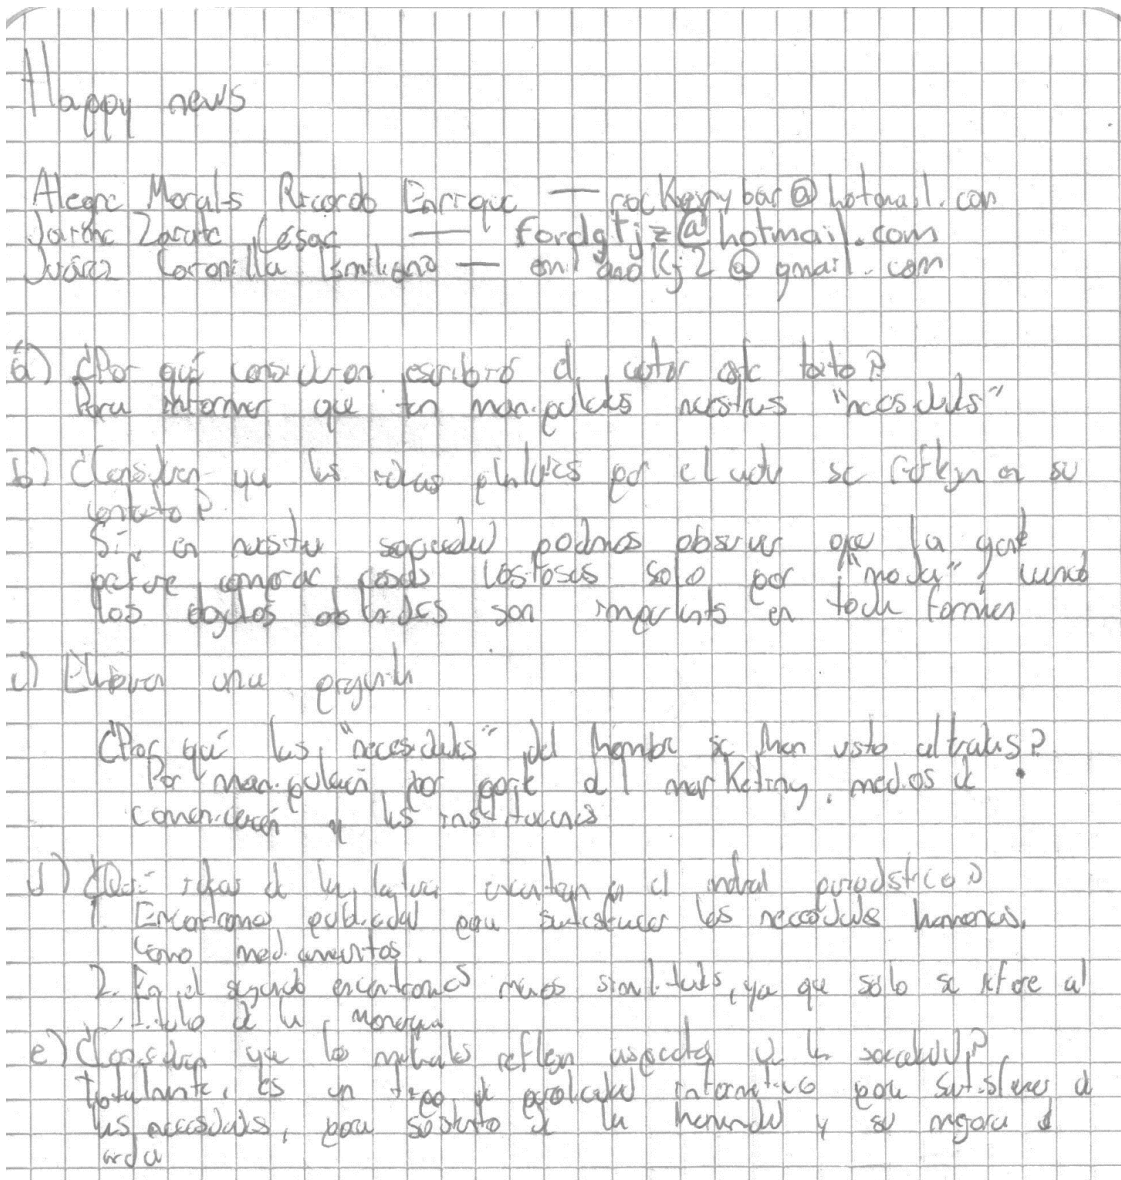 Happy news
Alegre Morales Ricardo Enrique — rockkennybar@hotmail.com
Zarate César — fordgtjz@hotmail.com
Juárez Coronilla Emiliano — emilianokj2@gmail.com
a) ¿Por qué consideran escribió el autor este texto?
Para informar que tan manipuladas nuestras "necesidades"
b) ¿Consideran que las ideas por el autor se reflejan en su
contexto?
Sí, en nuestra sociedad podemos observar que la gente
prefiere comprar cosas costosas solo por "moda", cuando
los objetos son importantes en toda
c) Elaboren una pregunta
¿Por qué las "necesidades" del hombre se han visto alteradas?
Por manipulación por parte del marketing, medios de
comunicación y las instituciones
d) ¿Qué ideas de la lectura encuentran en el material periodístico?
1. Encontramos publicidad para satisfacer las necesidades humanas,
como medicamentos.
2. En el segundo encontramos menos similitudes, ya que solo se refiere al
título de la
e) ¿Consideran que los materiales reflejan aspectos de la sociedad?
Totalmente, es un tipo de publicidad informativo para satisfacer a
las necesidades, para de la humanidad y su mejora de
vida